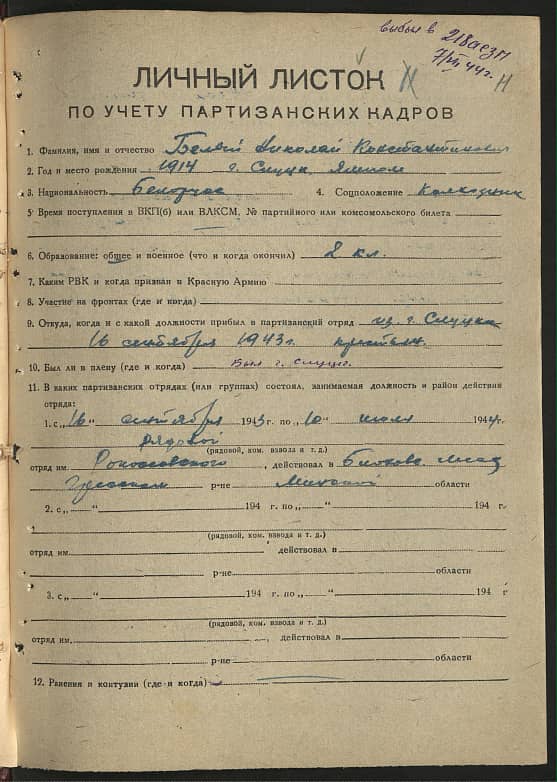 выбыл в 218 аезп
7/VII 44 г.
Н
ЛИЧНЫЙ ЛИСТОК
ПО УЧЕТУ ПАРТИЗАНСКИХ КАДРОВ
1. Фамилия, имя и отчество Белый Николай Константинович
2. Год и место рождения 1914 г. Слуцк
3. Национальность Белорус 4. Соцположение Колхозник
5. Время поступления в ВКП(б) или ВЛКСМ, № партийного или комсомольского билета
6. Образование: общее и военное (что и когда окончил) 2 кл.
7. Каким РВК и когда призван в Красную Армию
8. Участие на фронтах (где и когда)
9. Откуда, когда и с какой должности прибыл в партизанский отряд из г. Слуцка
16 сентября 1943 г. крестьян.
10. Был ли в плену (где и когда) был г. Слуцк
11. В каких партизанских отрядах (или группах) состоял, занимаемая должность и район действия
отряда:
1. с „16“ сентября 1943 г. по „10“ июля 1944 г.
рядовой
(рядовой, ком. взвода и т. д.)
отряд им. Рокоссовского, действовал в
Гресском р-не Минской области
2. с „ “ 194 г. по „ “ 194 г.
(рядовой, ком. взвода и т. д.)
отряд им. действовал в
р-не области
3. с „ “ 194 г. по „ “ 194 г
(рядовой, ком. взвода и т. д.)
отряд им. , действовал в
р-не области
12. Ранения и контузии (где и когда)